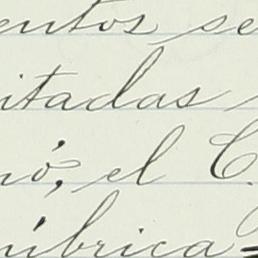 entos se
itadas
nó, el C
úbrica=